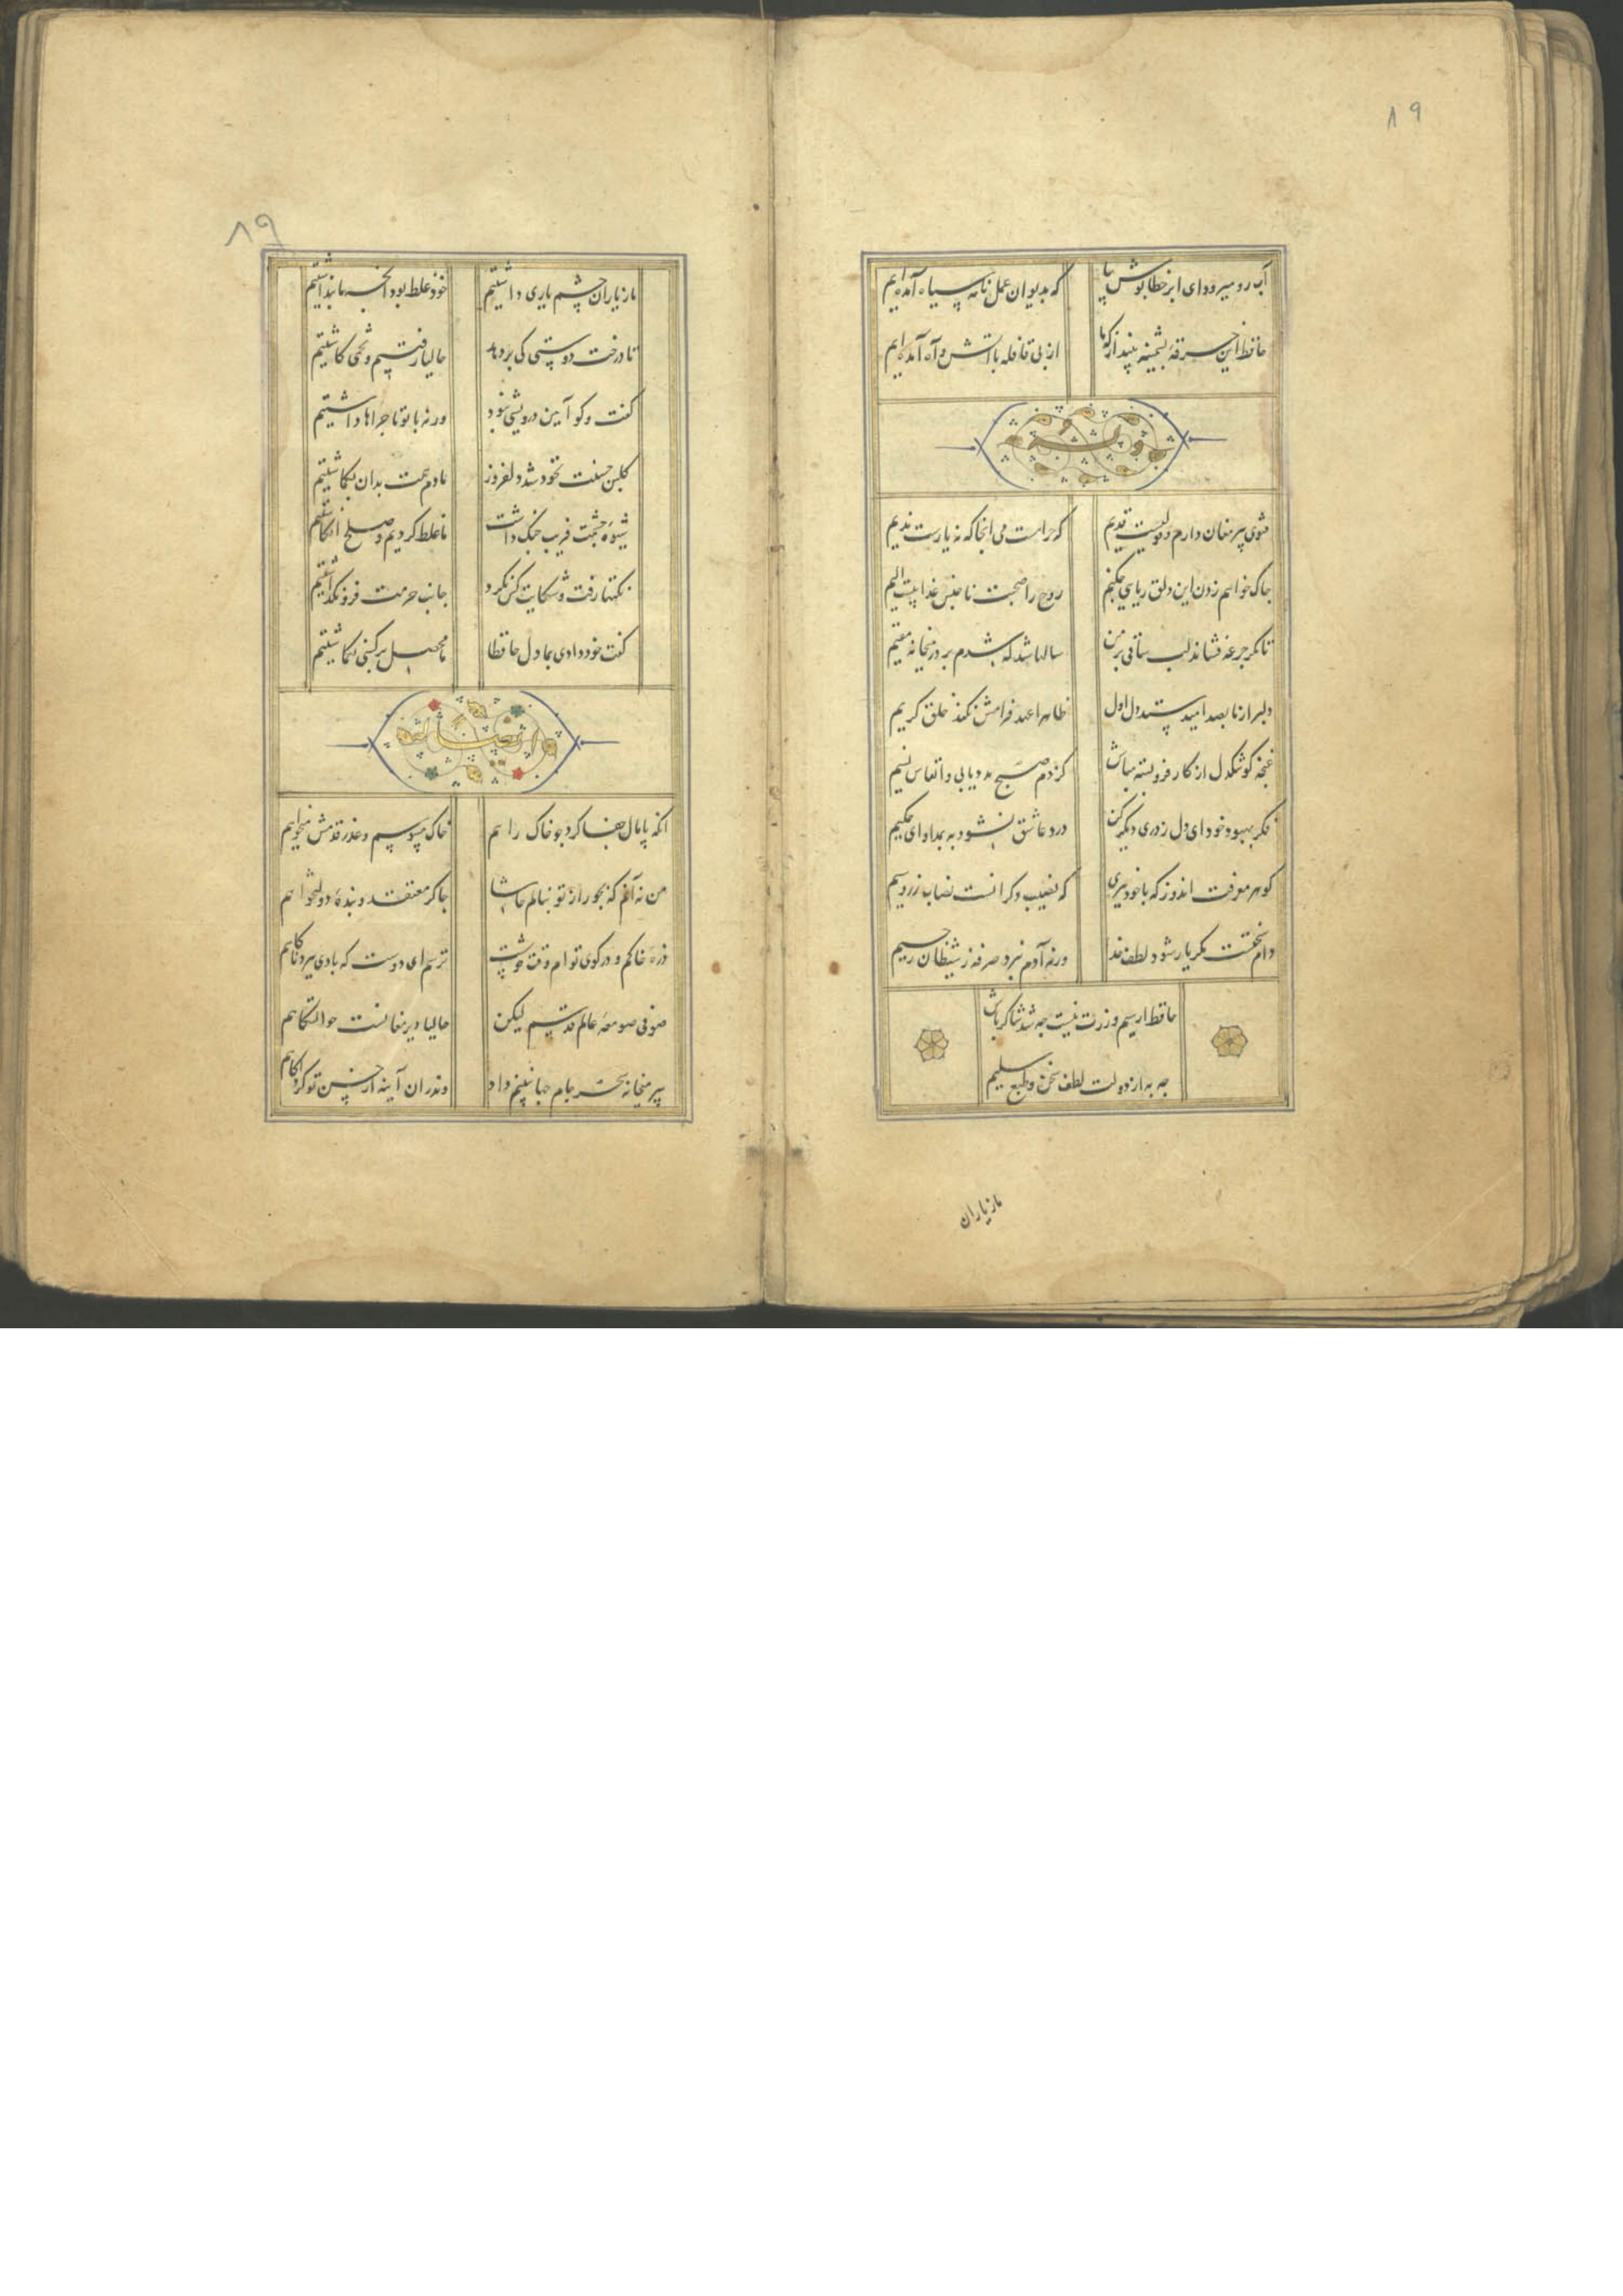 ۸۹
آب رو میرود ای ابر خطاپوش بیا
که بدیوان عمل نامه سیاه آمده‌ایم
حافظ این خرقهٔ پشمینه بینداز که ما
از پی قافله با آتش و آه آمده‌ایم
وله
فتوی پیر مغان دارم و قولیست قدیم
که حرامست می آنجا که نه یارست ندیم
چاک خواهم زدن این دلق ریایی چکنم
روح را صحبت ناجنس عذابیست الیم
تا مگر جرعه فشاند لب ساقی بر من
سالها شد که شدم بر در میخانه مقیم
دلبر از ما بصد امید ستد دل اول
ظاهرا عهد فرامش نکند خلق کریم
غنچه گو تنگدل از کار فروبسته مباش
کز دم صبح مدد یابی و انفاس نسیم
فکر بهبود خود ای دل ز دری دیگر کن
درد عاشق نشود به بمداوای حکیم
گوهر معرفت اندوز که با خود ببری
که نصیب دگرانست نصاب زر و سیم
دام سختست مگر یار شود لطف خدا
ورنه آدم نبرد صرفه ز شیطان رجیم
حافظ ار سیم و زرت نیست چه شد شاکر باش
چه به از دولت لطف سخن و طبع سلیم
ما ز یاران
۸۹
ما ز یاران چشم یاری داشتیم
خود غلط بود آنچه ما پنداشتیم
تا درخت دوستی کی بر دهد
حالیا رفتیم و تخمی کاشتیم
گفت و گو آیین درویشی نبود
ورنه با تو ماجراها داشتیم
گلبن حسنت نه خود شد دلفروز
ما دم همت بدان بگماشتیم
شیوهٔ چشمت فریب جنگ داشت
ما غلط کردیم و صلح انگاشتیم
نکتها رفت و شکایت کس نکرد
جانب حرمت فرو نگذاشتیم
گفت خود دادی بما دل حافظا
ما محصل بر کسی نگماشتیم
و ایضا له
آنکه پامال جفا کرد چو خاک راهم
خاک میبوسم و عذر قدمش میخواهم
من نه آنم که بجور از تو بنالم حاشا
چاکر معتقد و بندهٔ دولتخواهم
ذرهٔ خاکم و در کوی توام وقت خوشست
ترسم ای دوست که بادی ببرد ناگاهم
صوفی صومعهٔ عالم قدسم لیکن
حالیا دیر مغانست حوالتگاهم
پیر میخانه سحر جام جهان بینم داد
وندران آینه از حسن تو کرد آگاهم